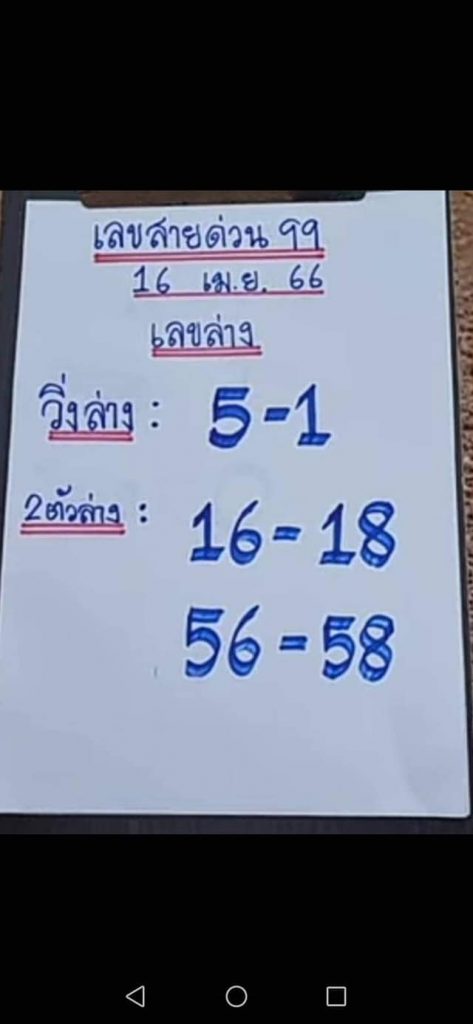 เลขสายด่วน 99
16 เม.ย. 66
เลขล่าง
วิ่งล่าง : 5-1
2ตัวล่าง : 16-18
56-58